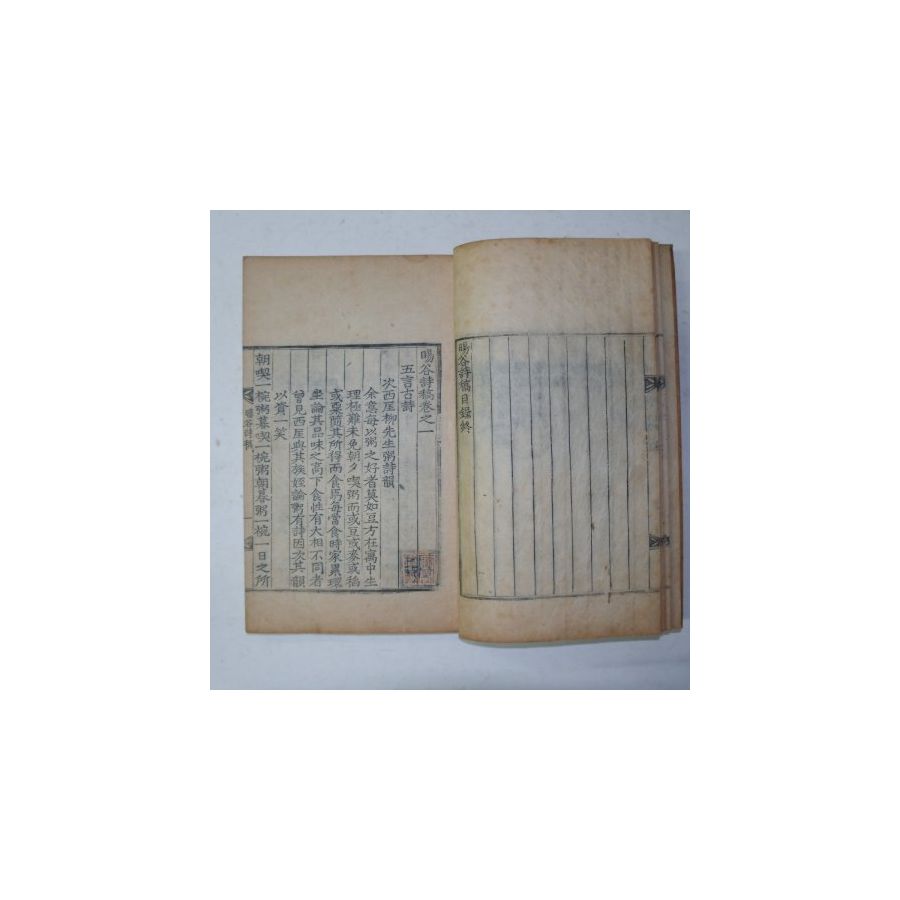 暘谷詩稿目錄終
暘谷詩稿卷之一
五言古詩
次西厓柳先生粥詩韻
余嘗每以粥之好者莫如豆方在寓中生
理極難未免朝夕喫粥而或豆或麥或稻
或粟隨其所得而食焉每當食時家累環
坐論其品味之高下食性有大相不同者
曾見西厓與其族姪論粥有詩因次其韻
以資一笑
朝喫一椀粥暮喫一椀粥朝暮粥一椀一日之所
暘谷詩稿